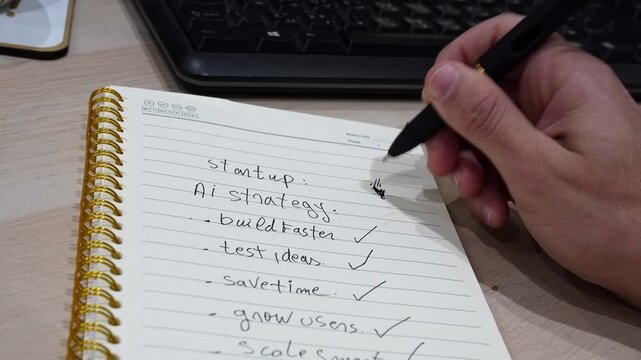 startup:
Ai strategy:
- build Faster ✓
- test ideas. ✓
- save time. ✓
- grow users. ✓
- scale smart